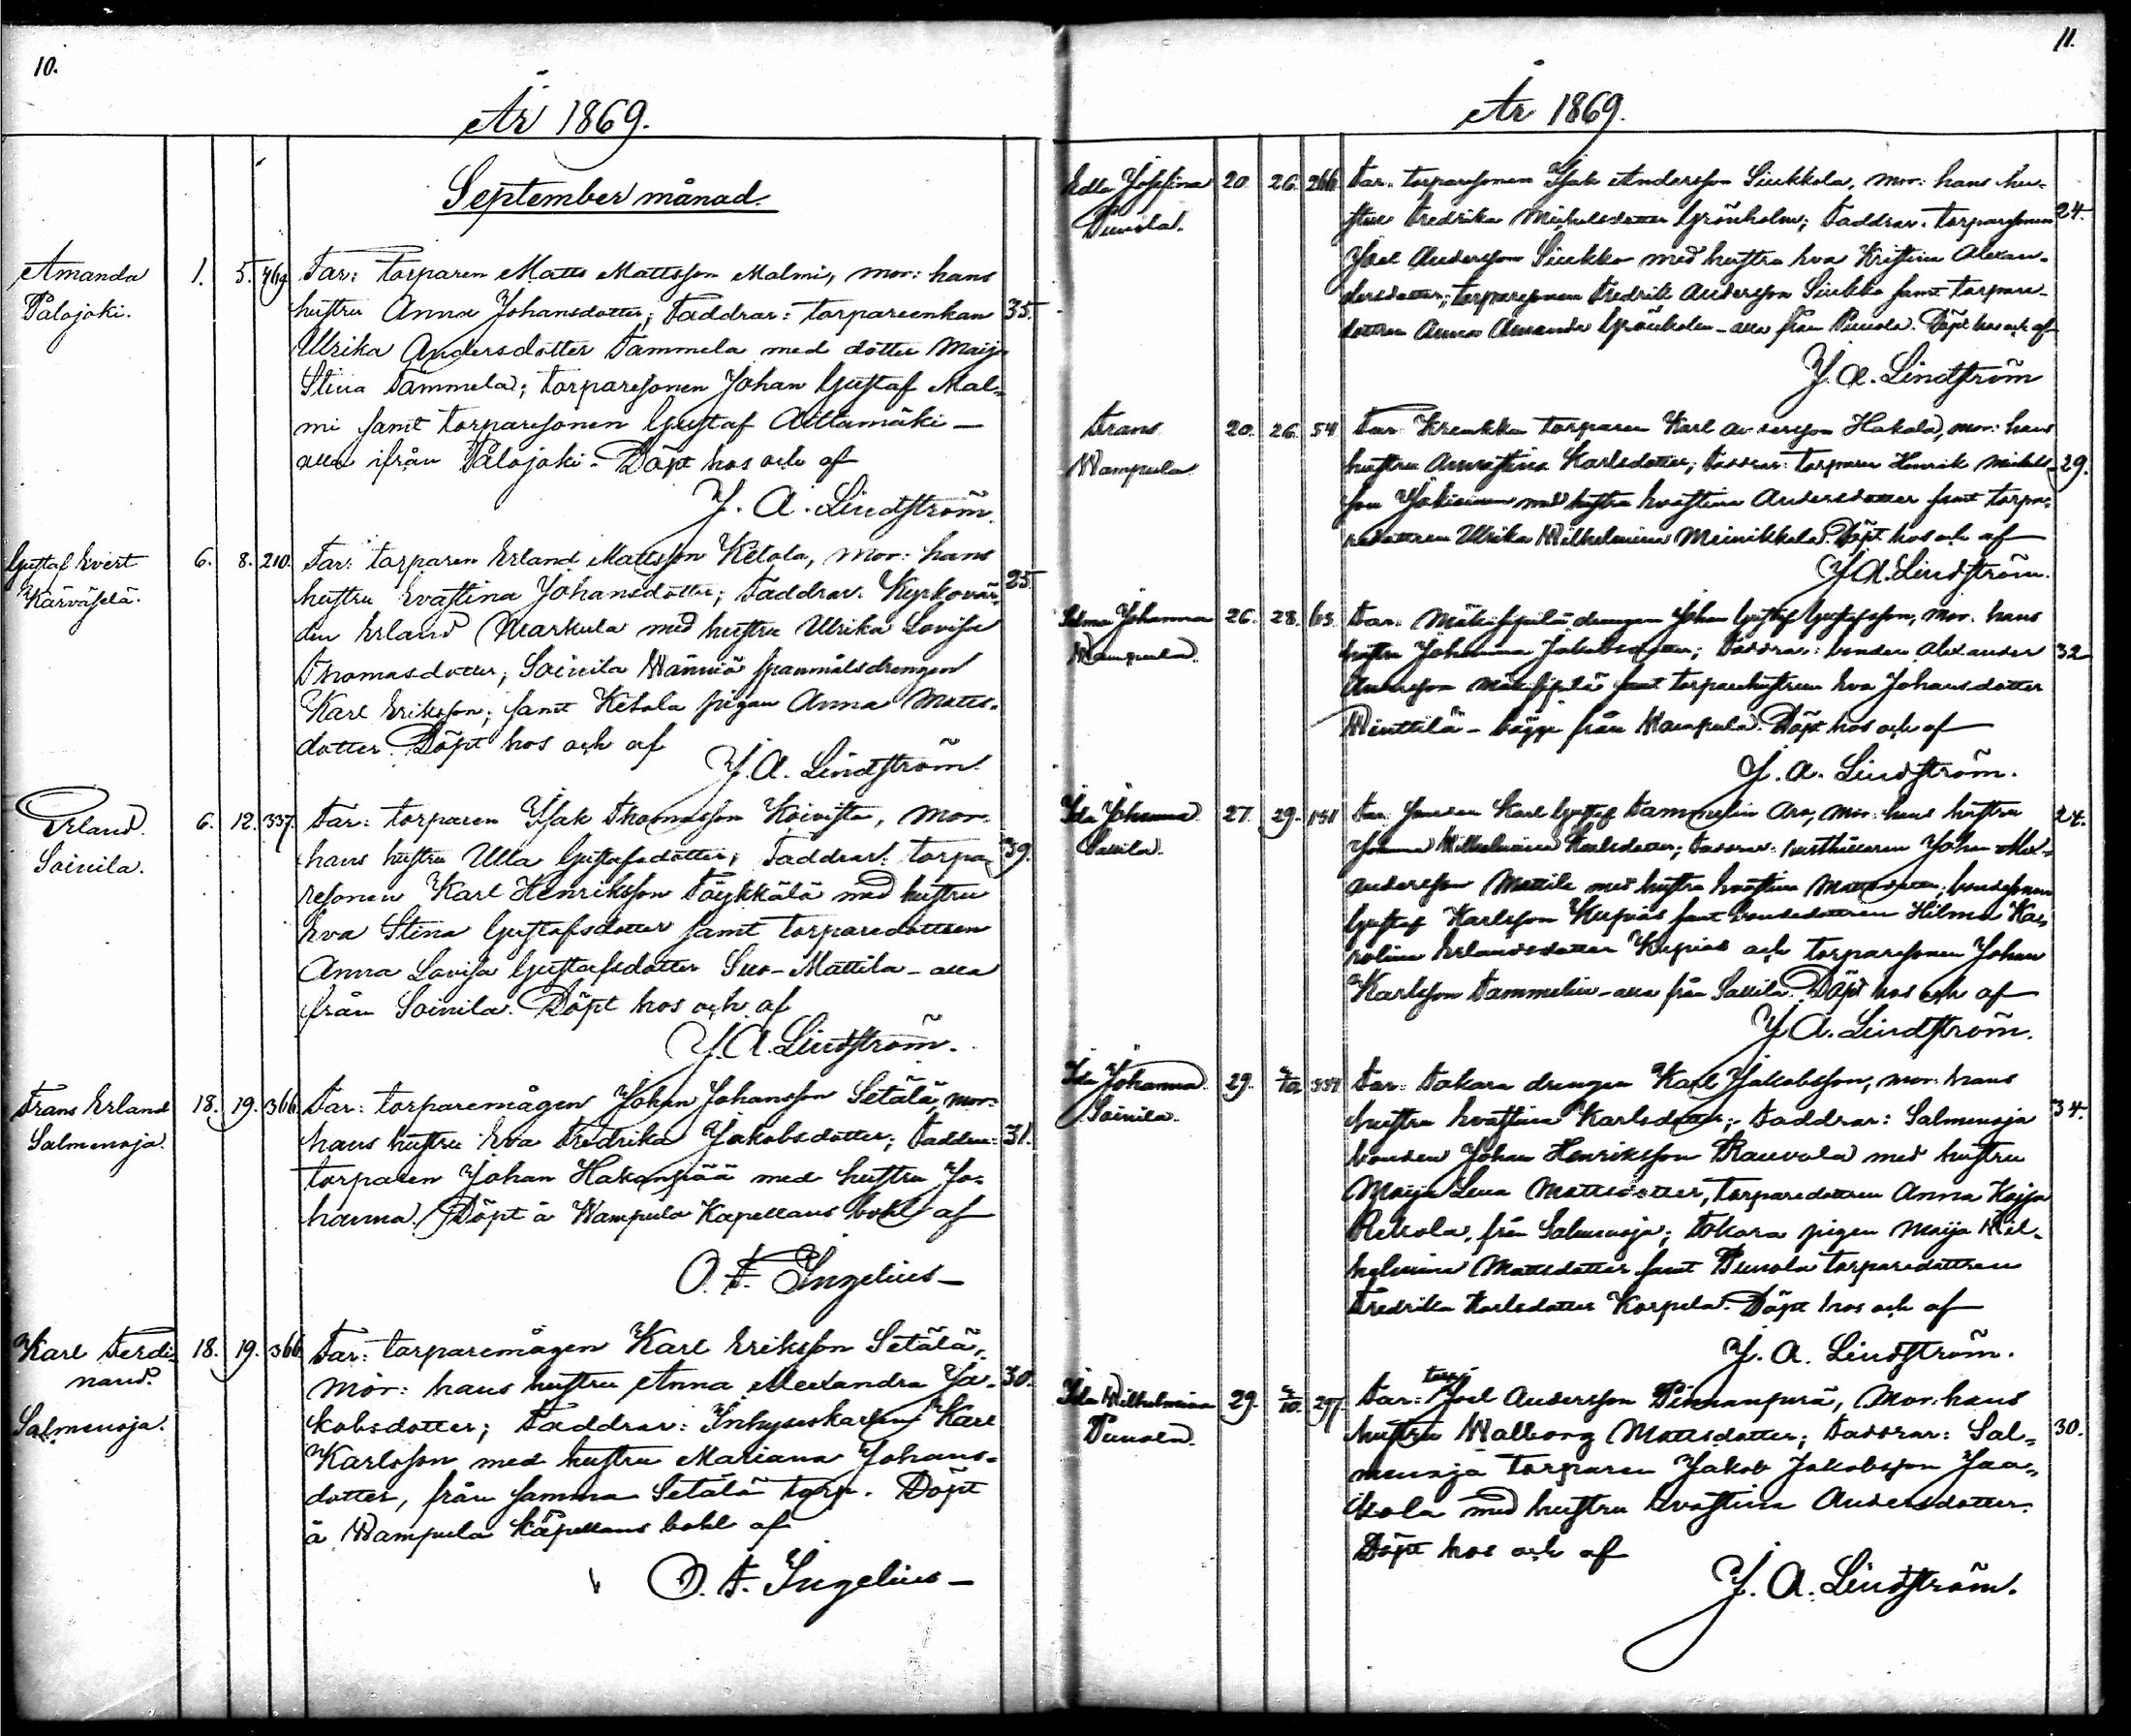 10.
År 1869.
September månad.
Amanda
Palojoki.
1. 5. 469.
Far: torparen Matts Mattsson Malmi, mor: hans
hustru Anna Johansdotter; Faddrar: torpareenkan 35.
Ulrika Andersdotter Tammela med dotter Maija
Stina Tammela; torparesonen Johan Gustaf Mal-
mi samt torparesonen Gustaf Aittamäki —
alla ifrån Palojoki. Döpt hos och af
J. A. Lindström.
Gustaf Evert
Kärväselä.
6. 8. 210.
Far: torparen Erland Mattsson Ketola, mor: hans
hustru Evastina Johansdotter; Faddrar: Kyrkovär- 25.
den Erland Markula med hustru Ulrika Lovisa
Thomasdotter; Soinila Wänniä spanmålsdrengen
Karl Eriksson; samt Ketola pigan Anna Matts-
dotter. Döpt hos och af
J. A. Lindström.
Erland.
Soinila.
6. 12. 337.
Far: torparen Isak Thomasson Koivisto, mor:
hans hustru Ulla Gustafsdotter; Faddrar: torpa- 39.
resonen Karl Henriksson Töykkälä med hustru
Eva Stina Gustafsdotter samt torparedottren
Anna Lovisa Gustafsdotter Suo-Mattila - alla
från Soinila. Döpt hos och af
J. A. Lindström.
Frans Erland
Salmenoja.
18. 19. 366.
Far: torparemågen Johan Johansson Setälä, mor:
hans hustru Eva Fredrika Jakobsdotter; Faddrar: 31.
torparen Johan Hakanpää med hustru Jo-
hanna. Döpt å Wampula Kapellans bohl af
O. F. Ingelius —
Karl Ferdi-
nand.
Salmenoja.
18. 19. 366.
Far: torparemågen Karl Eriksson Setälä,
mor: hans hustru Anna Alexandra Ja- 30.
kobsdotter; Faddrar: Inhyseskarlen Karl
Karlsson med hustru Mariana Johans-
dotter, från samma Setälä torp. Döpt
å Wampula Kapellans bohl af
O. F. Ingelius —
11.
År 1869.
Edla Josefina
Punola.
20. 26. 266.
Far: torparesonen Isak Andersson Siukkola, mor: hans hu-
stru Fredrika Michelsdotter Grönholm; Faddrar: torparesonen 24.
Joel Andersson Siukko med hustru Eva Kristina Alexan-
dersdotter; torparesonen Fredrik Andersson Siukko samt torpare-
dottren Anna Amanda Grönholm - alla från Punola. Döpt hos och af
J. A. Lindström
Frans
Wampula
20. 26. 54
Far: Krenkka torparen Karl Andersson Hakala, mor: hans
hustru Annastina Karlsdotter; Faddrar: torparen Henrik Mickels- 29.
son med hustru Evastina Andersdotter samt torpa-
redottren Ulrika Wilhelmina Meinikkala. Döpt hos och af
J. A. Lindström.
Selma Johanna
Wampula.
26. 28. 65.
Far: Mäkisipilä drengen Johan Gustaf Gustafsson, mor: hans
hustru Johanna Jakobsdotter; Faddrar: bonden Alexander 32
Andersson Mäkisipilä samt torparehustrun Eva Johansdotter
Winttilä - bägge från Wampula. Döpt hos och af
J. A. Lindström.
Ida Johanna
Sallila.
27. 29. 151
Far: Karl Gustaf Tammelin Aro, mor: hans hustru 24.
Johanna Wilhelmina Karlsdotter; Faddrar: Johan
Andersson Mattila med hustru Evastina Mattsdotter; bondesonen
Gustaf Karlsson Kupias samt bondedottren Hilma Ka-
rolina Erlandsdotter Kupias och torparesonen Johan
Karlsson Tammelin - alla från Sallila. Döpt hos och af
J. A. Lindström.
Ida Johanna.
Soinila.
29. /10. 334
Far: Tokara drengen Karl Jakobsson, mor: hans
hustru Evastina Karlsdotter; Faddrar: Salmenoja 34.
bonden Johan Henriksson Rauvola med hustru
Maija Lena Mattsdotter, torparedottren Anna Kajsa
Rekola, från Salmenoja; Tokara pigan Maija Wil-
helmina Mattsdotter samt Punola torparedottren
Fredrika Karlsdotter Korpela. Döpt hos och af
J. A. Lindström.
Ida Wilhelmina
Punola.
29. /10. 297
Far: torp: Joel Andersson Pinnanperä, Mor: hans
hustru Walborg Mattsdotter; Faddrar: Sal- 30.
menoja torparen Jakob Jakobsson Jaa-
kola med hustru Evastina Andersdotter.
Döpt hos och af
J. A. Lindström.